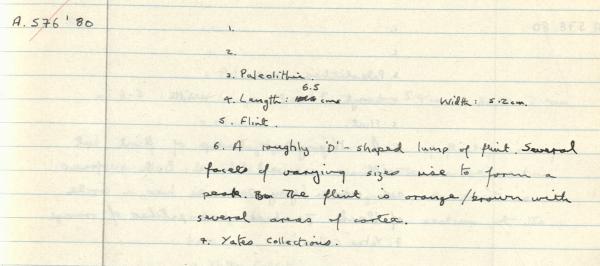 A. 576 ' 80
1.
2.
3. Paleolithic.
6.5
4. Length: cms Width: 5.2cm.
5. Flint.
6. A roughly 'D'-shaped lump of flint. Several
facets of varying sizes rise to form a
peak. The flint is orange/brown with
several areas of cortex.
7. Yates Collections.